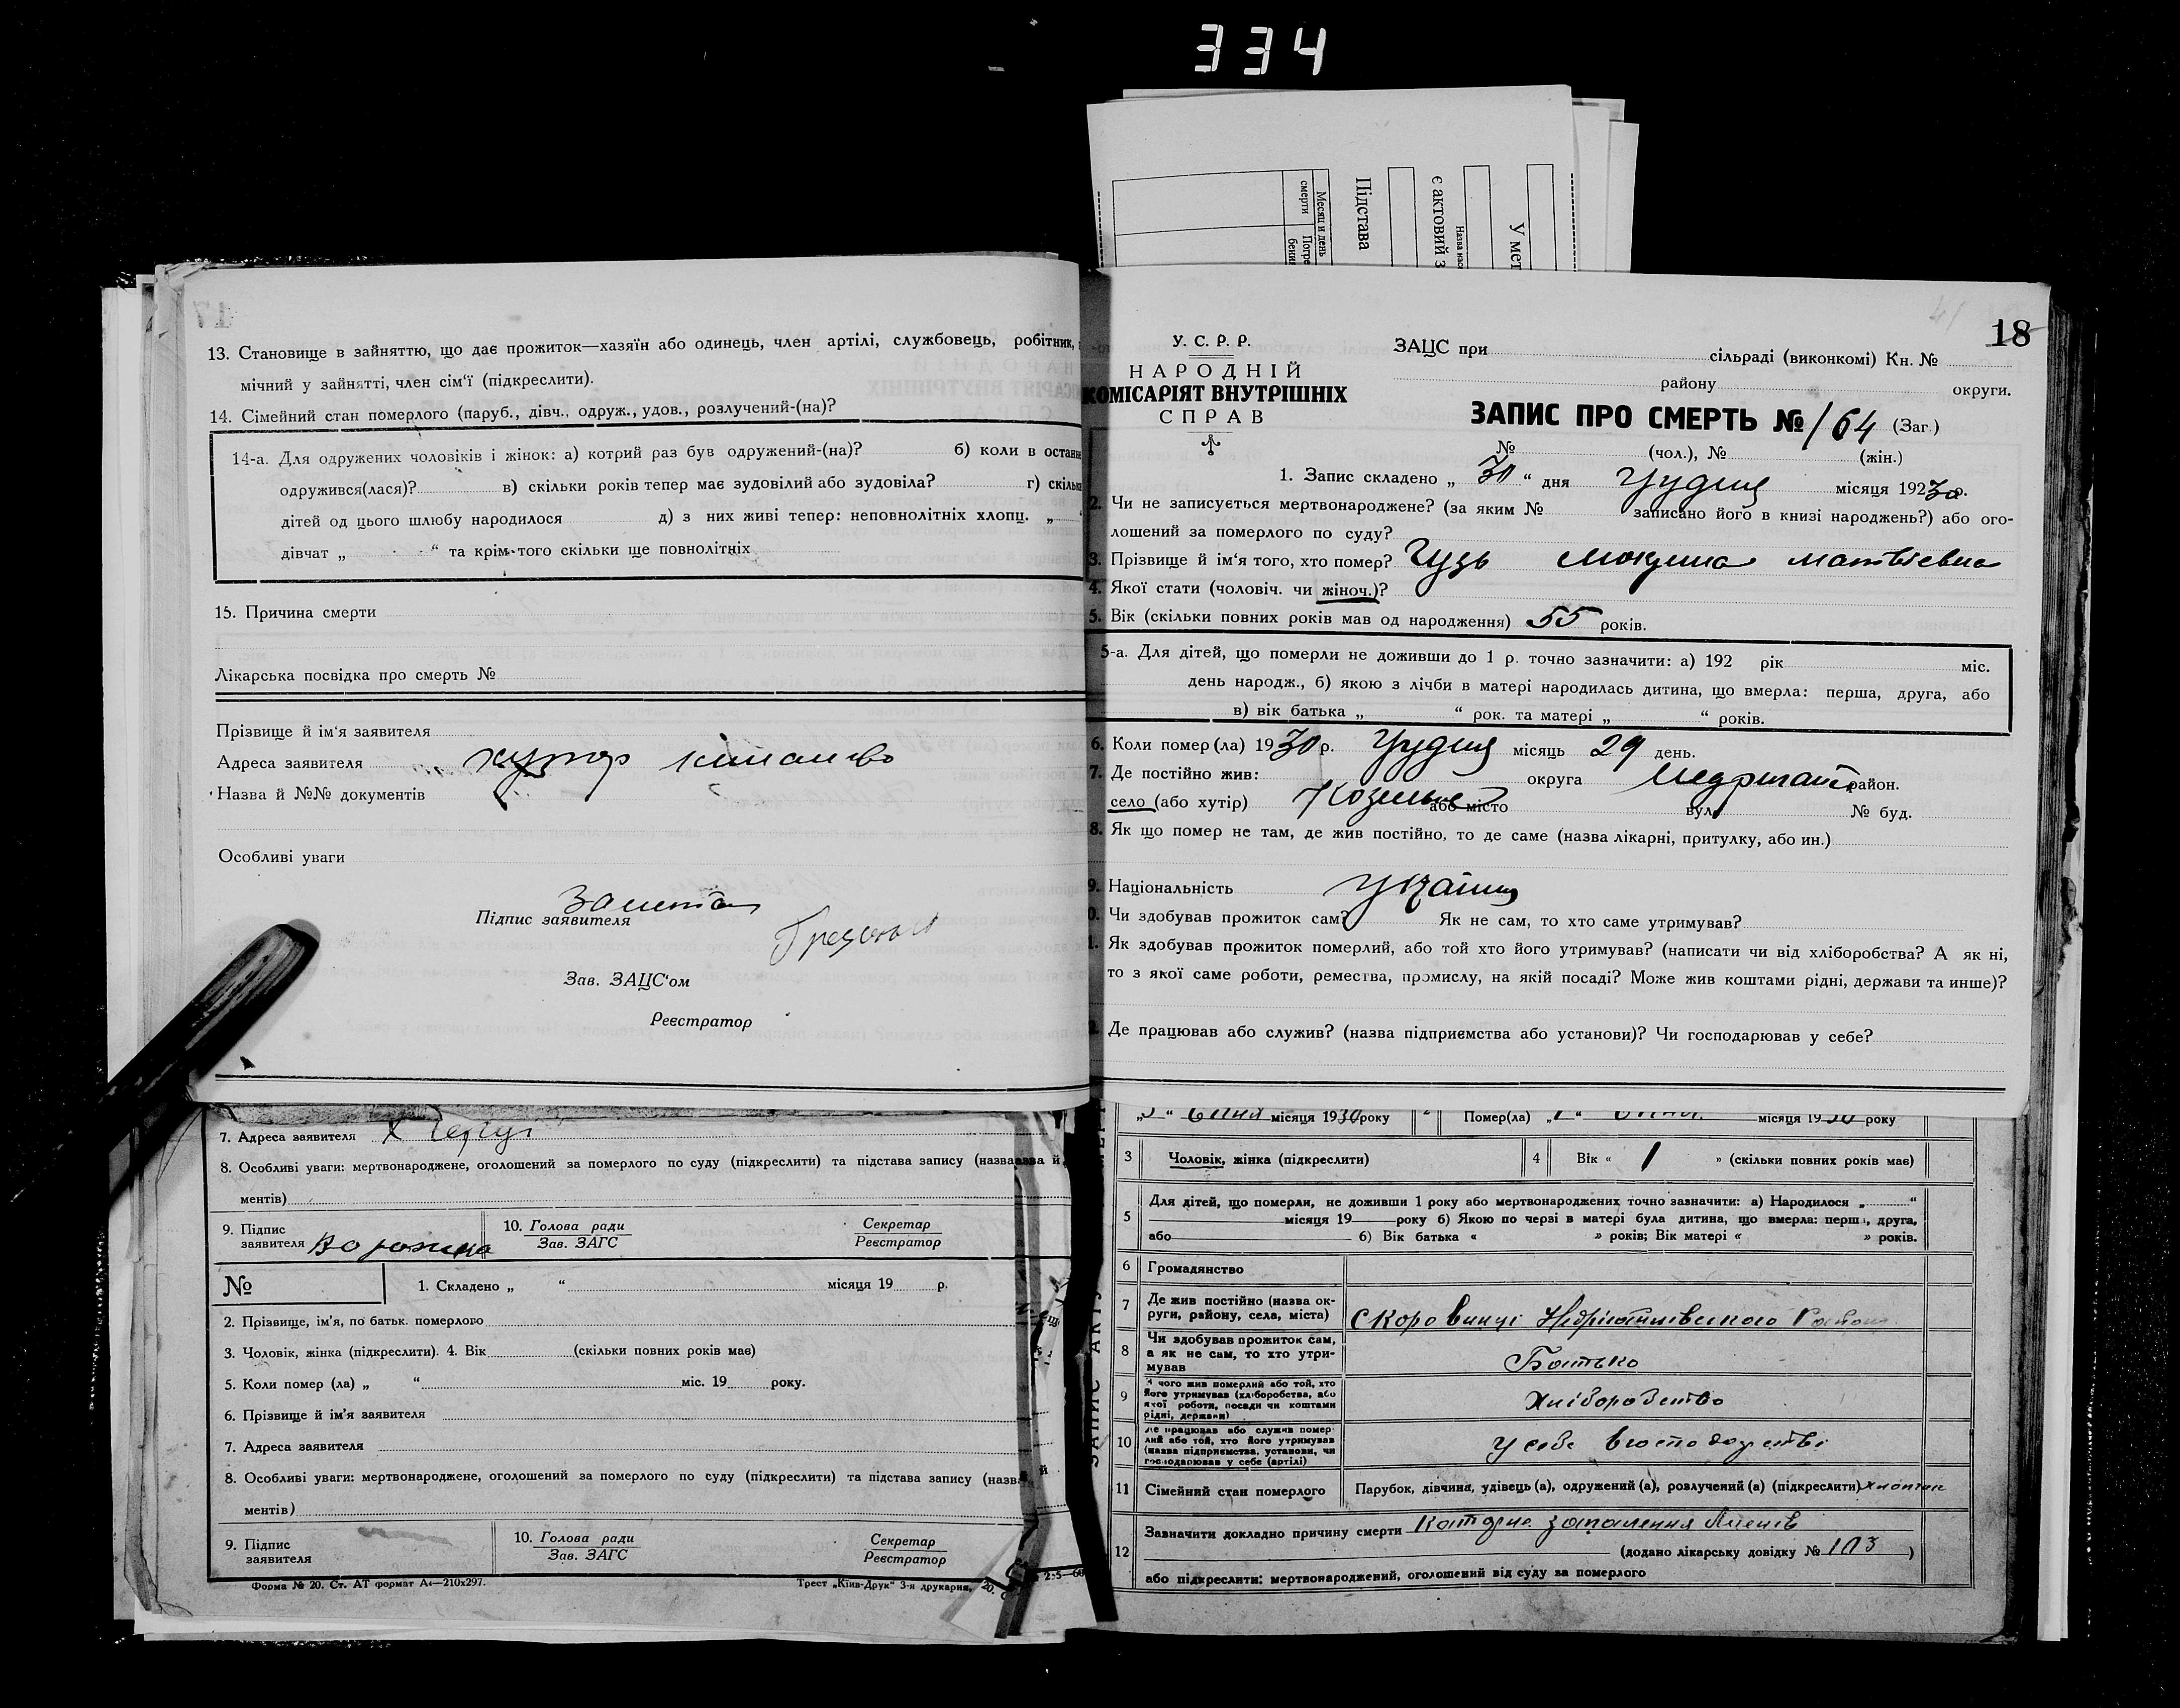 334
Месяц и день
смерти
Погре
бения
Підстава
є актовий з
Назва нас
У мет
17
13. Становище в зайняттю, що дає прожиток—хазяїн або одинець, член артілі, службовець, робітник,
мічний у зайнятті, член сім‘ї (підкреслити).
14. Сімейний стан померлого (паруб., дівч., одруж., удов., розлучений-(на)?
14-а. Для одружених чоловіків і жінок: а) котрий раз був одружений-(на)? б) коли в останн
одружився(лася)? в) скільки років тепер має зудовілий або зудовіла? г) скільк
дітей од цього шлюбу народилося д) з них живі тепер: неповнолітніх хлопц. „
дівчат „ “ та крім того скільки ще повнолітніх
15. Причина смерти
Лікарська посвідка про смерть №
Прізвище й ім‘я заявителя
Адреса заявителя хутор
Назва й №№ документів
Особливі уваги
Підпис заявителя
Зав. ЗАЦС‘ом
Реєстратор
41
18
У. С. Р. Р.
НАРОДНІЙ
КОМІСАРІЯТ ВНУТРІШНІХ
СПРАВ
ЗАЦС при сільраді (виконкомі) Кн. №
району округи.
ЗАПИС ПРО СМЕРТЬ № 164 (Заг.)
№ (чол.), № (жін.)
1. Запис складено „ 30 “ дня Грудня місяця 192 30 р.
2. Чи не записується мертвонароджене? (за яким № записано його в книзі народжень?) або ого-
лошений за померлого по суду?
3. Прізвище й ім‘я того, хто помер? Гузь Мокрина Матвієвна
4. Якої стати (чоловіч. чи жіноч.)?
5. Вік (скільки повних років мав од народження) 55 років.
5-а. Для дітей, що померли не доживши до 1 р. точно зазначити: а) 192 рік міс.
день народж., б) якою з лічби в матері народилась дитина, що вмерла: перша, друга, або
в) вік батька „ “ рок. та матері „ “ років.
6. Коли помер(ла) 1930 р. Грудня місяць 29 день.
7. Де постійно жив: округа район.
село (або хутір) Козельне або місто вул. № буд.
8. Як що помер не там, де жив постійно, то де саме (назва лікарні, притулку, або ин.)
9. Національність
0. Чи здобував прожиток сам? Як не сам, то хто саме утримував?
1. Як здобував прожиток померлий, або той хто його утримував? (написати чи від хліборобства? А як ні,
то з якої саме роботи, ремества, промислу, на якій посаді? Може жив коштами рідні, держави та инше)?
Де працював або служив? (назва підприємства або установи)? Чи господарював у себе?
7. Адреса заявителя х
8. Особливі уваги: мертвонароджене, оголошений за померлого по суду (підкреслити) та підстава запису (назва й
ментів)
9. Підпис
заявителя
10. Голова ради
Зав. ЗАГС
Секретар
Реєстратор
№
1. Складено „ “ місяця 19 р.
2. Прізвище, ім‘я, по батьк. померлого
3. Чоловік, жінка (підкреслити). 4. Вік (скільки повних років має)
5. Коли помер (ла) „ “ міс. 19 року.
6. Прізвище й ім‘я заявителя
7. Адреса заявителя
8. Особливі уваги: мертвонароджене, оголошений за померлого по суду (підкреслити) та підстава запису (назва й
ментів)
9. Підпис
заявителя
10. Голова ради
Зав. ЗАГС
Секретар
Реєстратор
Форма № 20. Ст. АТ формат А4—210х297.
Трест „Київ-Друк“ 3-я друкарня,
місяця 1930 року
Помер(ла) місяця 1930 року
3 Чоловік, жінка (підкреслити)
4 Вік « 1 » (скільки повних років має)
5 Для дітей, що померли, не доживши 1 року або мертвонароджених точно зазначити: а) Народилося „ “
місяця 19 року б) Якою по черзі в матері була дитина, що вмерла: перша, друга,
або б) Вік батька « » років; Вік матері « » років.
6 Громадянство
7 Де жив постійно (назва ок-
руги, району, села, міста)
Скоровинці
8 Чи здобував прожиток сам,
а як не сам, то хто утри-
мував
Батько
9 З чого жив померлий або той, хто
його утримував (хліборобства, або
якої роботи, посади чи коштами
рідні, держави)
Хліборобство
10 Де працював або служив помер-
лий або той, хто його утримував
(назва підприємства, установи, чи
господарював у себе (артілі)
у себе в господарстві
11 Сімейний стан померлого
Парубок, дівчина, удівець (а), одружений (а), розлучений (а) (підкреслити) хлопчик
12 Зазначити докладно причину смерти Катарне запалення легенів
(додано лікарську довідку № 103 )
або підкреслити: мертвонароджений, оголошений від суду за померлого
ЗАПИС АКТУ